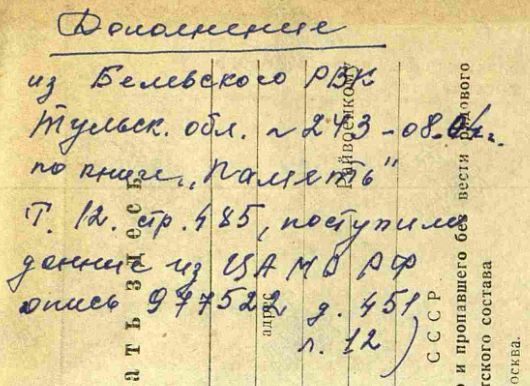 Дополнение
из Белевского РВК
Тульск. обл. ~ 243 - 08.04г.
по книге „Память"
Т. 12. стр. 485, поступили
данные из ЦАМО РФ
опись 977522 д. 451
л. 12
ать здесь
адрес
Райвоенкому
СССР
и пропавшего без вести рядового
ского состава
осква.